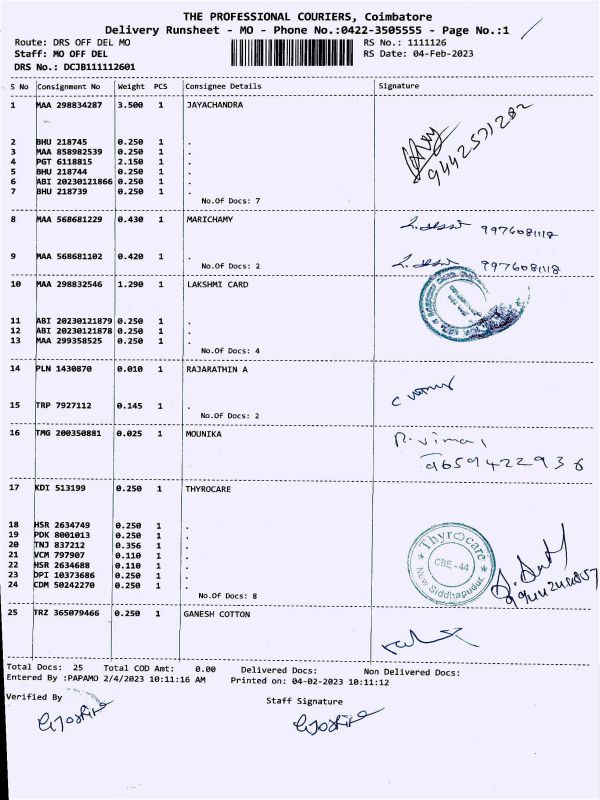 THE PROFESSIONAL COURIERS, Coimbatore
Delivery Runsheet - MO - Phone No.:0422-3505555 - Page No.:1
Route: DRS OFF DEL MO RS No.: 1111126
Staff: MO OFF DEL RS Date: 04-Feb-2023
DRS No.: DCJB111112601
S No Consignment No Weight PCS Consignee Details Signature
1 MAA 298834287 3.500 1 JAYACHANDRA
9442571282
2 BHU 218745 0.250 1 .
3 MAA 858982539 0.250 1 .
4 PGT 6118815 2.150 1 .
5 BHU 218744 0.250 1 .
6 ABI 20230121866 0.250 1 .
7 BHU 218739 0.250 1 .
No.Of Docs: 7
8 MAA 568681229 0.430 1 MARICHAMY
9976081118
9 MAA 568681102 0.420 1 .
9976081118
No.Of Docs: 2
10 MAA 298832546 1.290 1 LAKSHMI CARD
11 ABI 20230121879 0.250 1 .
12 ABI 20230121878 0.250 1 .
13 MAA 299358525 0.250 1 .
No.Of Docs: 4
14 PLN 1430870 0.010 1 RAJARATHIN A
15 TRP 7927112 0.145 1 .
No.Of Docs: 2
16 TMG 200350881 0.025 1 MOUNIKA
R. Vimal
9659422936
17 KDI 513199 0.250 1 THYROCARE
18 HSR 2634749 0.250 1 .
19 PDK 8001013 0.250 1 .
20 TNJ 837212 0.356 1 .
21 VCM 797907 0.110 1 .
22 HSR 2634688 0.110 1 .
23 DPI 10373686 0.250 1 .
24 CDM 50242270 0.250 1 .
No.Of Docs: 8
Thyrocare
CBE - 44
New Siddhapudur
25 TRZ 365079466 0.250 1 GANESH COTTON
Total Docs: 25 Total COD Amt: 0.00 Delivered Docs: Non Delivered Docs:
Entered By :PAPAMO 2/4/2023 10:11:16 AM Printed on: 04-02-2023 10:11:12
Verified By Staff Signature